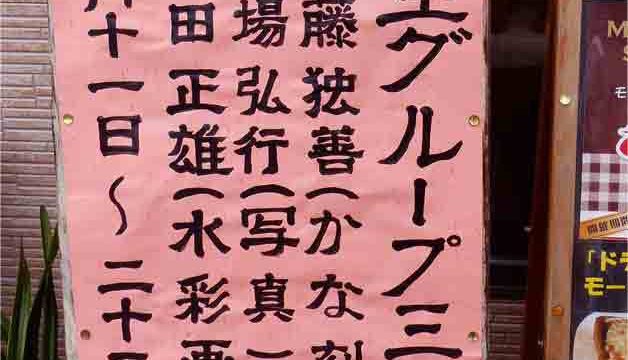 グループ三
藤 独善(かな刻
場 弘行(写真
田 正雄(水彩画
十一日～二十
M
S
モ
開催期間
「ドラ
モー